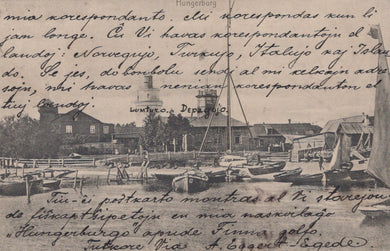 Hungerburg
mia korespondanto, ĉiu korespondas kun li
jam longe. Ĉu Vi havas korespondantojn el
landoj: Norvegujo, Turkujo, Italujo kaj Islan
do. Se jes, do bonvolu sendi al mi kelkajn adre
sojn, mi havas nenian korespondanton el
tiuj landoj.
LUMTURO. DEPAGEJO.
Tiu-ĉi poŝtkarto montras al Vi
de fiŝkaptŝipetojn en mia naskurlago
"Hungerburgo apude Finna golfo.
Tutkore Via A. Eggert